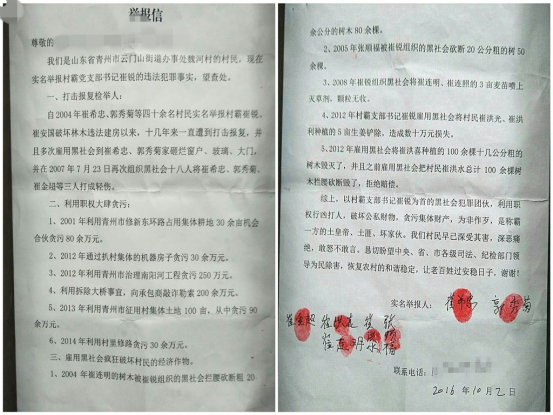 举报信
尊敬的
我们是山东省青州市云门山街道办事处魏河村的村民，现在
实名举报村霸党支部书记崔锐的违法犯罪事实，望查处。
一、打击报复检举人：
自 2004 年崔希忠、郭秀菊等四十余名村民实名举报村霸崔锐、
崔安国破坏林木违法建房以来，十几年来一直遭到打击报复，并
且多次雇用黑社会到崔希忠、郭秀菊家砸烂窗户、玻璃、大门，
并在 2007 年 7 月 23 日再次组织黑社会十八人将崔希忠、郭秀菊、
崔金超等三人打成轻伤。
二、利用职权大肆贪污：
1、2001 年利用青州市修新东环路占用集体耕地 30 余亩机会
合伙贪污 80 余万元。
2、2012 年通过扒村集体的机器房子贪污 30 余万元。
3、2012 年利用青州市治理南阳河工程贪污 250 万元。
4、利用拆除大桥事宜，向承包商敲诈勒索 200 余万元。
5、2013 年利用青州市征用村集体土地 100 亩，从中贪污 90
余万元。
6、2014 年利用村里修路贪污 30 余万元。
三、雇用黑社会疯狂破坏村民的经济作物。
1、2004 年崔连明的树木被崔锐组织的黑社会拦腰砍断粗 20
余公分的树木 80 余棵。
2、2005 年张顺福被崔锐组织的黑社会砍断 20 公分粗的树 50
余棵。
3、2008 年崔锐组织黑社会将崔连明、崔连照的 3 亩麦苗喷上
灭草剂、颗粒无收。
4、2012 年村霸支部书记崔锐雇用黑社会将村民崔洪光、崔洪
利种植的 5 亩生姜铲除，造成数十万元损失。
5、2012 年雇用黑社会将崔洪喜种植的 100 余棵十几公分粗的
树木毁灭了，并且之前雇用黑社会把村民崔洪水总计 100 余棵
树木拦腰砍断毁了，拒绝赔偿。
综上，以村霸支部书记崔锐为首的黑社会犯罪团伙，利用职
权行凶打人，破坏公私财物，贪污集体财产，为非作歹，是称霸
一方的土皇帝、土匪、坏家伙。我们村民早已深受其害，深恶痛
绝，敢怒不敢言。恳切盼望中央、省、市各级司法、纪检部门领
导为民除害，恢复农村的和谐稳定，让老百姓过安稳日子。谢谢！
实名举报人：
联系电话：
2016 年 10 月 2 日